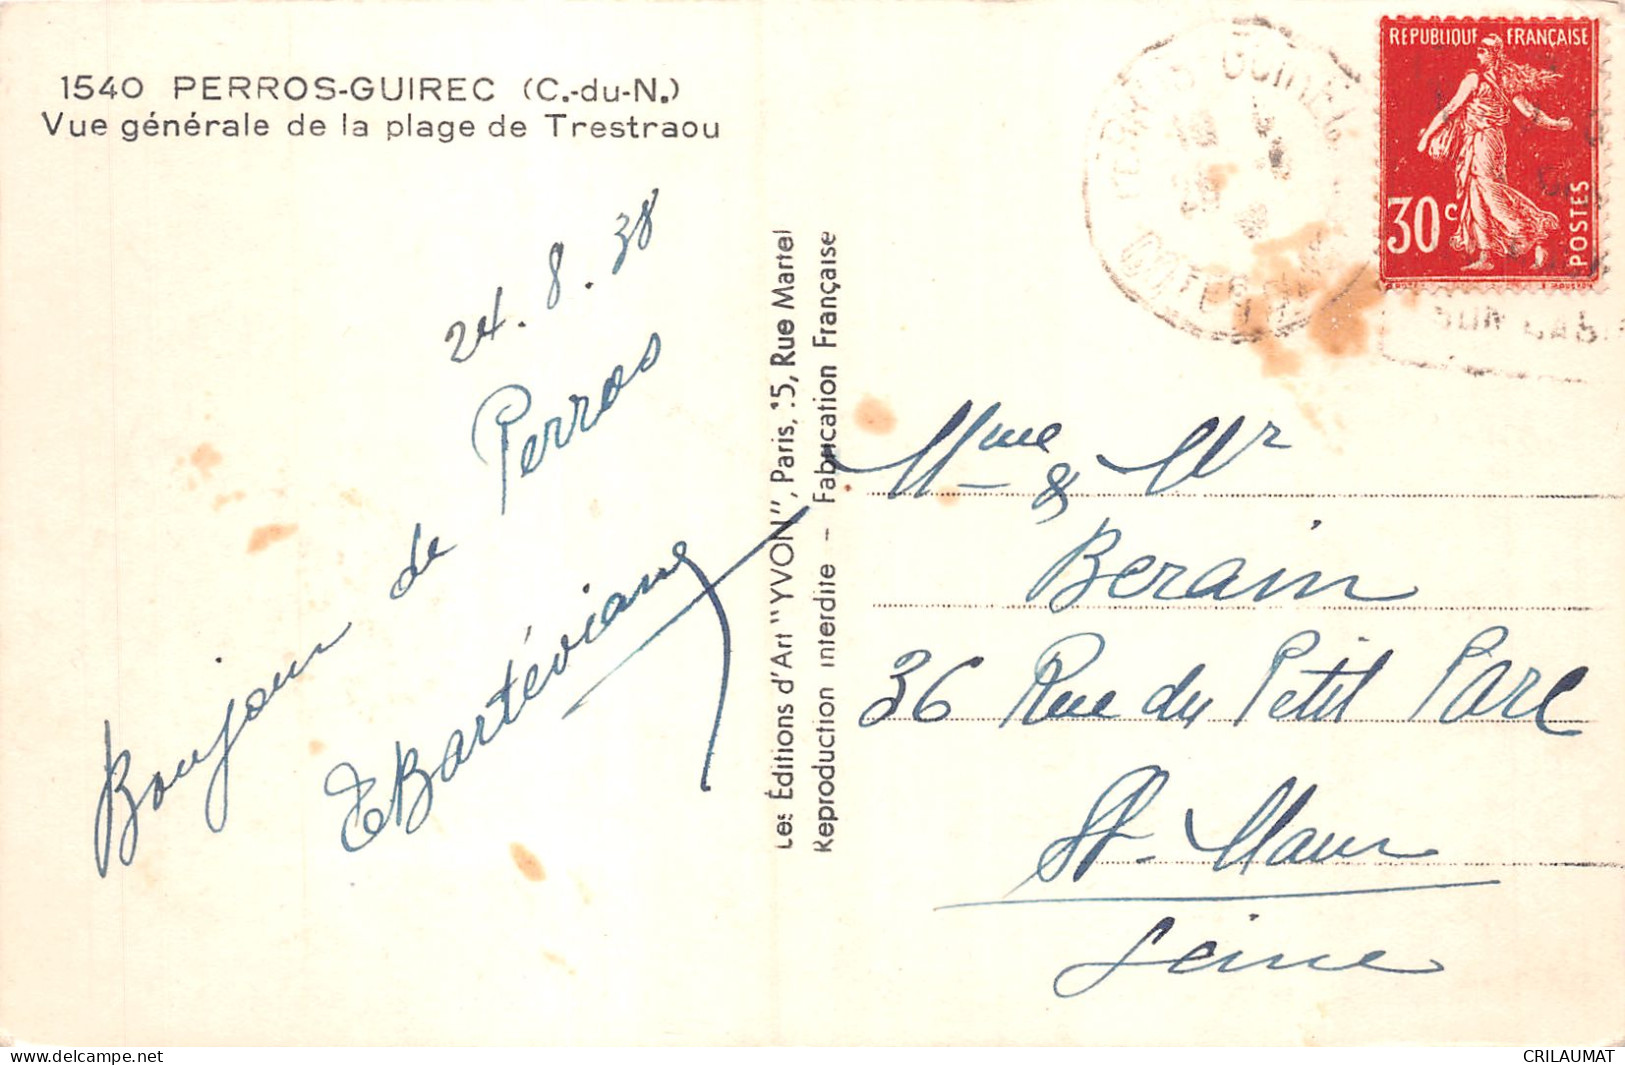 1540 PERROS-GUIREC (C.-du-N.)
Vue générale de la plage de Trestraou
24.8.38
Bonjour de Perros
Les Éditions d'Art "YVON", Paris, 15, Rue Martel
Reproduction interdite - Fabrication Française
REPUBLIQUE FRANÇAISE
30c
POSTES
PERROS GUIREC
SON
Mme & Mr
Berain
36 Rue du Petit Parc
St-Maur
Seine
www.delcampe.net
CRILAUMAT